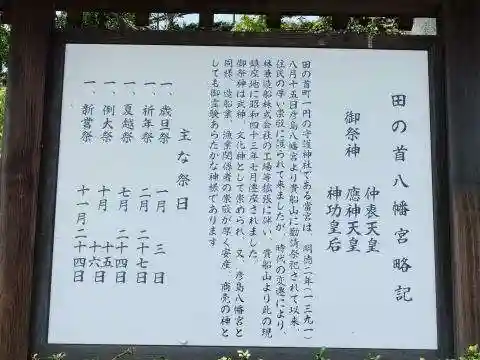 田の首八幡宮略記
御祭神
仲哀天皇
應神天皇
神功皇后
田の首町一円の守護神社である当宮は、明徳二年(一三九一)
八月十五日彦島八幡宮より貴船山に勧請祭祀されて以来、
住民の厚い崇敬に護られて来ましたが、時代の変遷により、
林兼造船株式会社の工場等拡張に伴い、貴船山より此の現
鎮座地に昭和四十三年七月遷座されました。
御祭神は武神、文化神として崇められ、又、彦島八幡宮と
同様、造船業、漁業関係者の崇敬が厚く安産、商売の神と
しても御霊験あらたかな神様であります
主な祭日
一、歳旦祭 一月 三日
一、祈年祭 二月 二十七日
一、夏越祭 七月 二十四日
一、例大祭 十月 十五日 十六日
一、新嘗祭 十一月二十四日